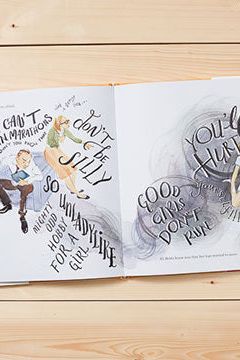 CAN'T
N MARATHONS
DON'T
BE
SILLY
SO
UNLADYLIKE
MIGHTY
ODD
HOBBY
FOR A
GIRL
YOU'LL
HURT
GOOD
GIRLS
DON'T
RUN!